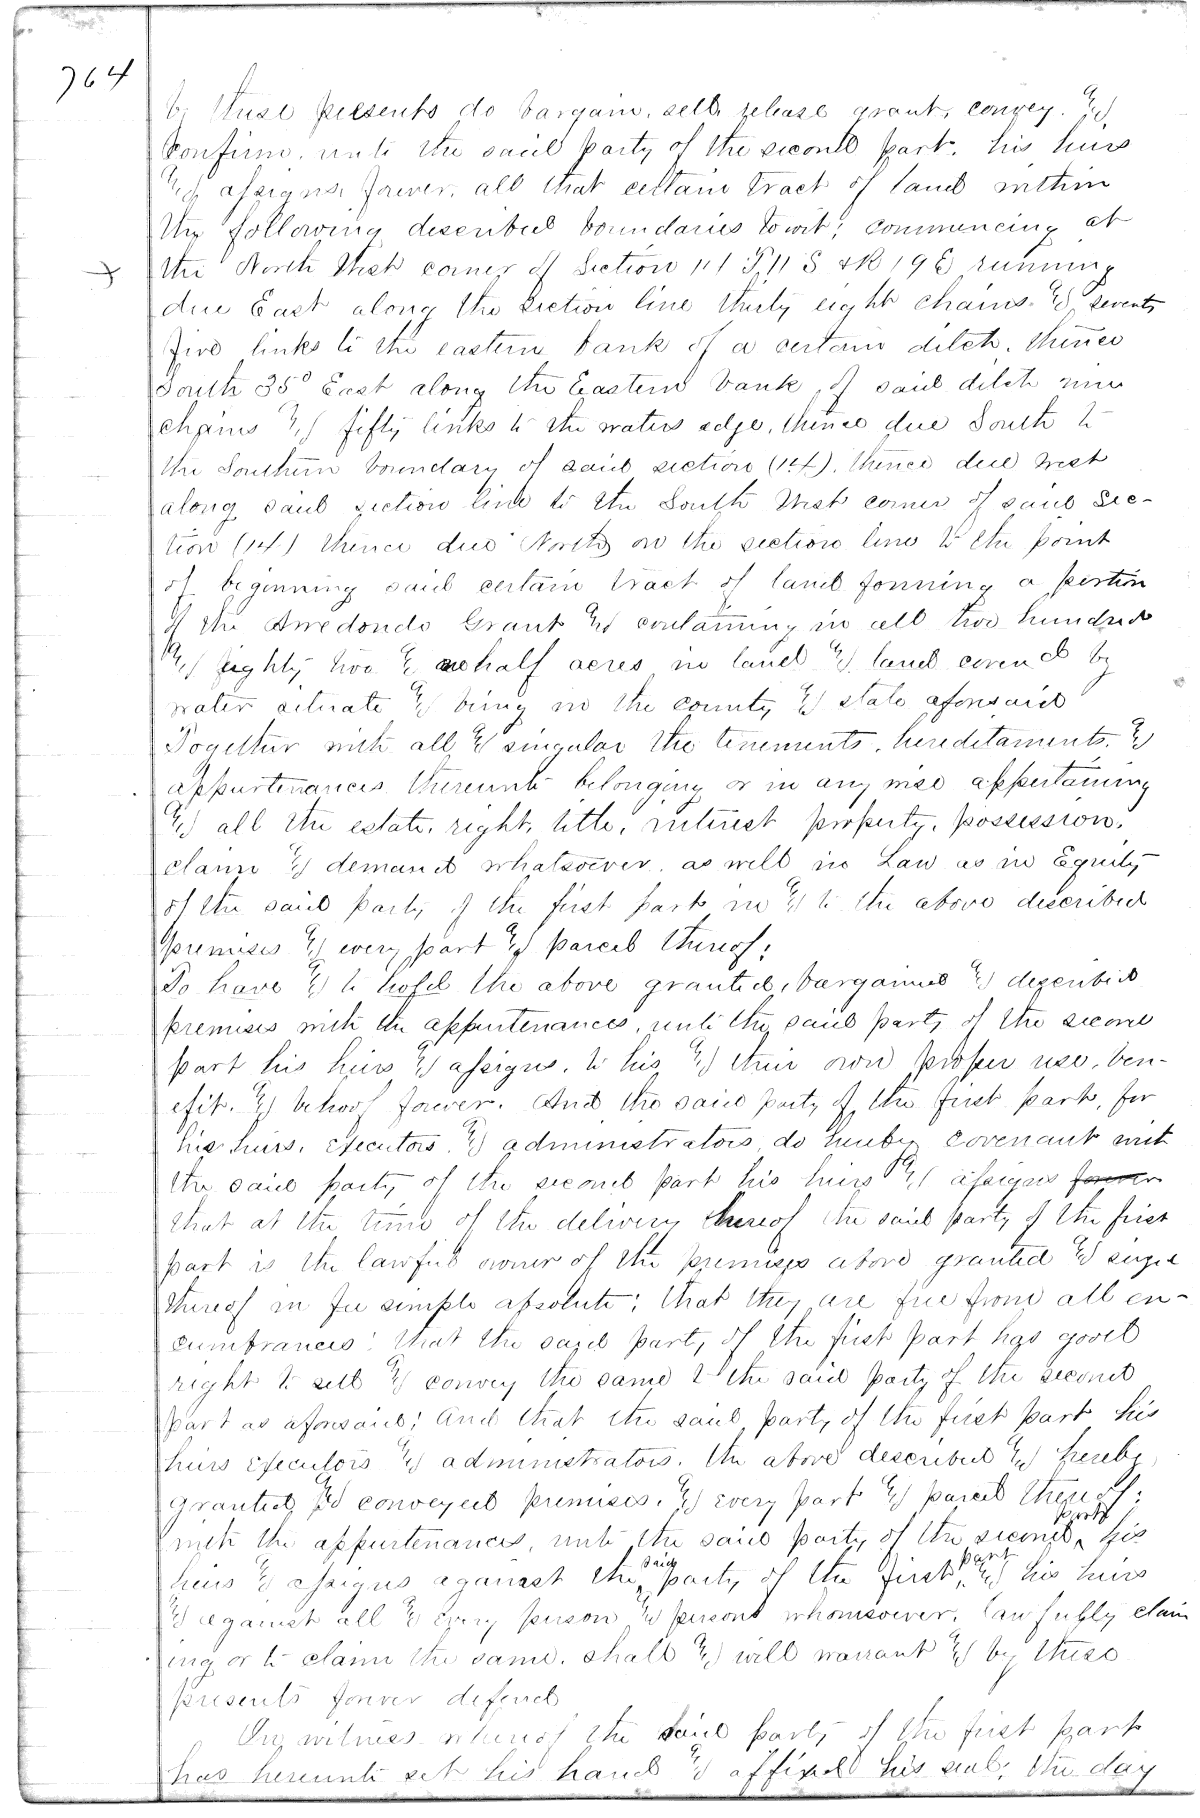 764
by these presents do bargain, sell, release grant, convey. &
Confirm. unto the said party of the second part. his heirs
& assigns forever. all that certain tract of land within
the following described boundaries towit; commencing at
the North West corner of Section 14 T 11 S & R 19 E running
due East along the section line thirty eight chains & seventy
five links to the eastern bank of a certain ditch. thence
South 35° East along the Eastern bank of said ditch nine
chains & fifty links to the waters edge, thence due South to
the Southern boundary of said section (14). thence due west
along said section line to the South West corner of said Sec-
tion (14) thence due North on the section line to the point
of beginning said certain tract of land forming a portion
of the Arredondo Grant & containing in all two hundred
& eighty two & onehalf acres in land & land covered by
water situate & being in the county & state aforesaid
Together with all & singular the tenements, hereditaments, &
appurtenances thereunto belonging or in any wise appertaining
& all the estate, right, title, interest property, possession,
claim & demand whatsoever. as well in Law as in Equity
of the said party of the first part in & to the above described
premises & every part & parcel thereof;
To have & to hold the above granted, bargained & described
premises with the appurtenances, unto the said party of the second
part his heirs & assigns, to his & their own proper use, ben-
efit. & behoof forever. And the said party of the first part, for
his heirs, executors, & administrators do hereby covenant with
the said party of the second part his heirs & assigns forever
that at the time of the delivery hereof the said party of the first
part is the lawful owner of the premises above granted & seized
thereof in fee simple absolute; that they are free from all en-
cumbrances; that the said party of the first part has good
right to sell & convey the same to the said party of the second
part as aforesaid; And that the said party of the first part his
heirs executors & administrators. the above described & hereby
granted & conveyed premises. & every part & parcel thereof;
with the appurtenances, unto the said party of the second part his
heirs & assigns against the said party of the first part & his heirs
& against all & every person & persons whomsoever. lawfully claim
ing or to claim the same. shall & will warrant & by these
presents forever defend
In witness whereof the said party of the first part
has hereunto set his hand & affixed his seal; the day